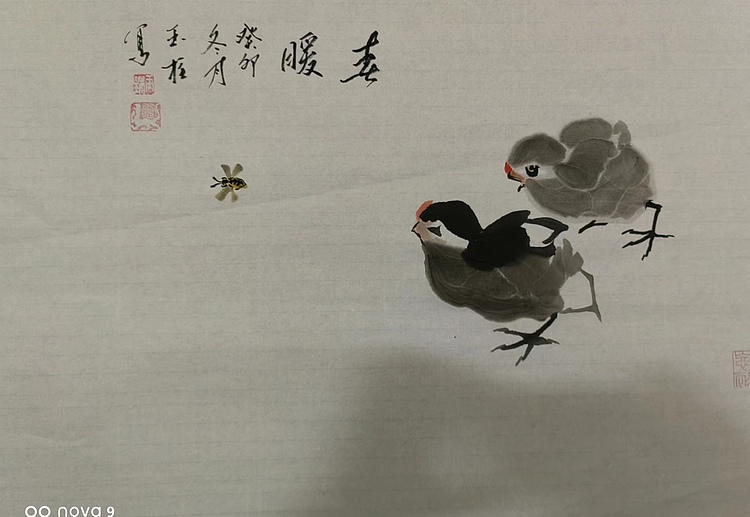 春暖
癸卯
冬月
玉柱
写
nova 9